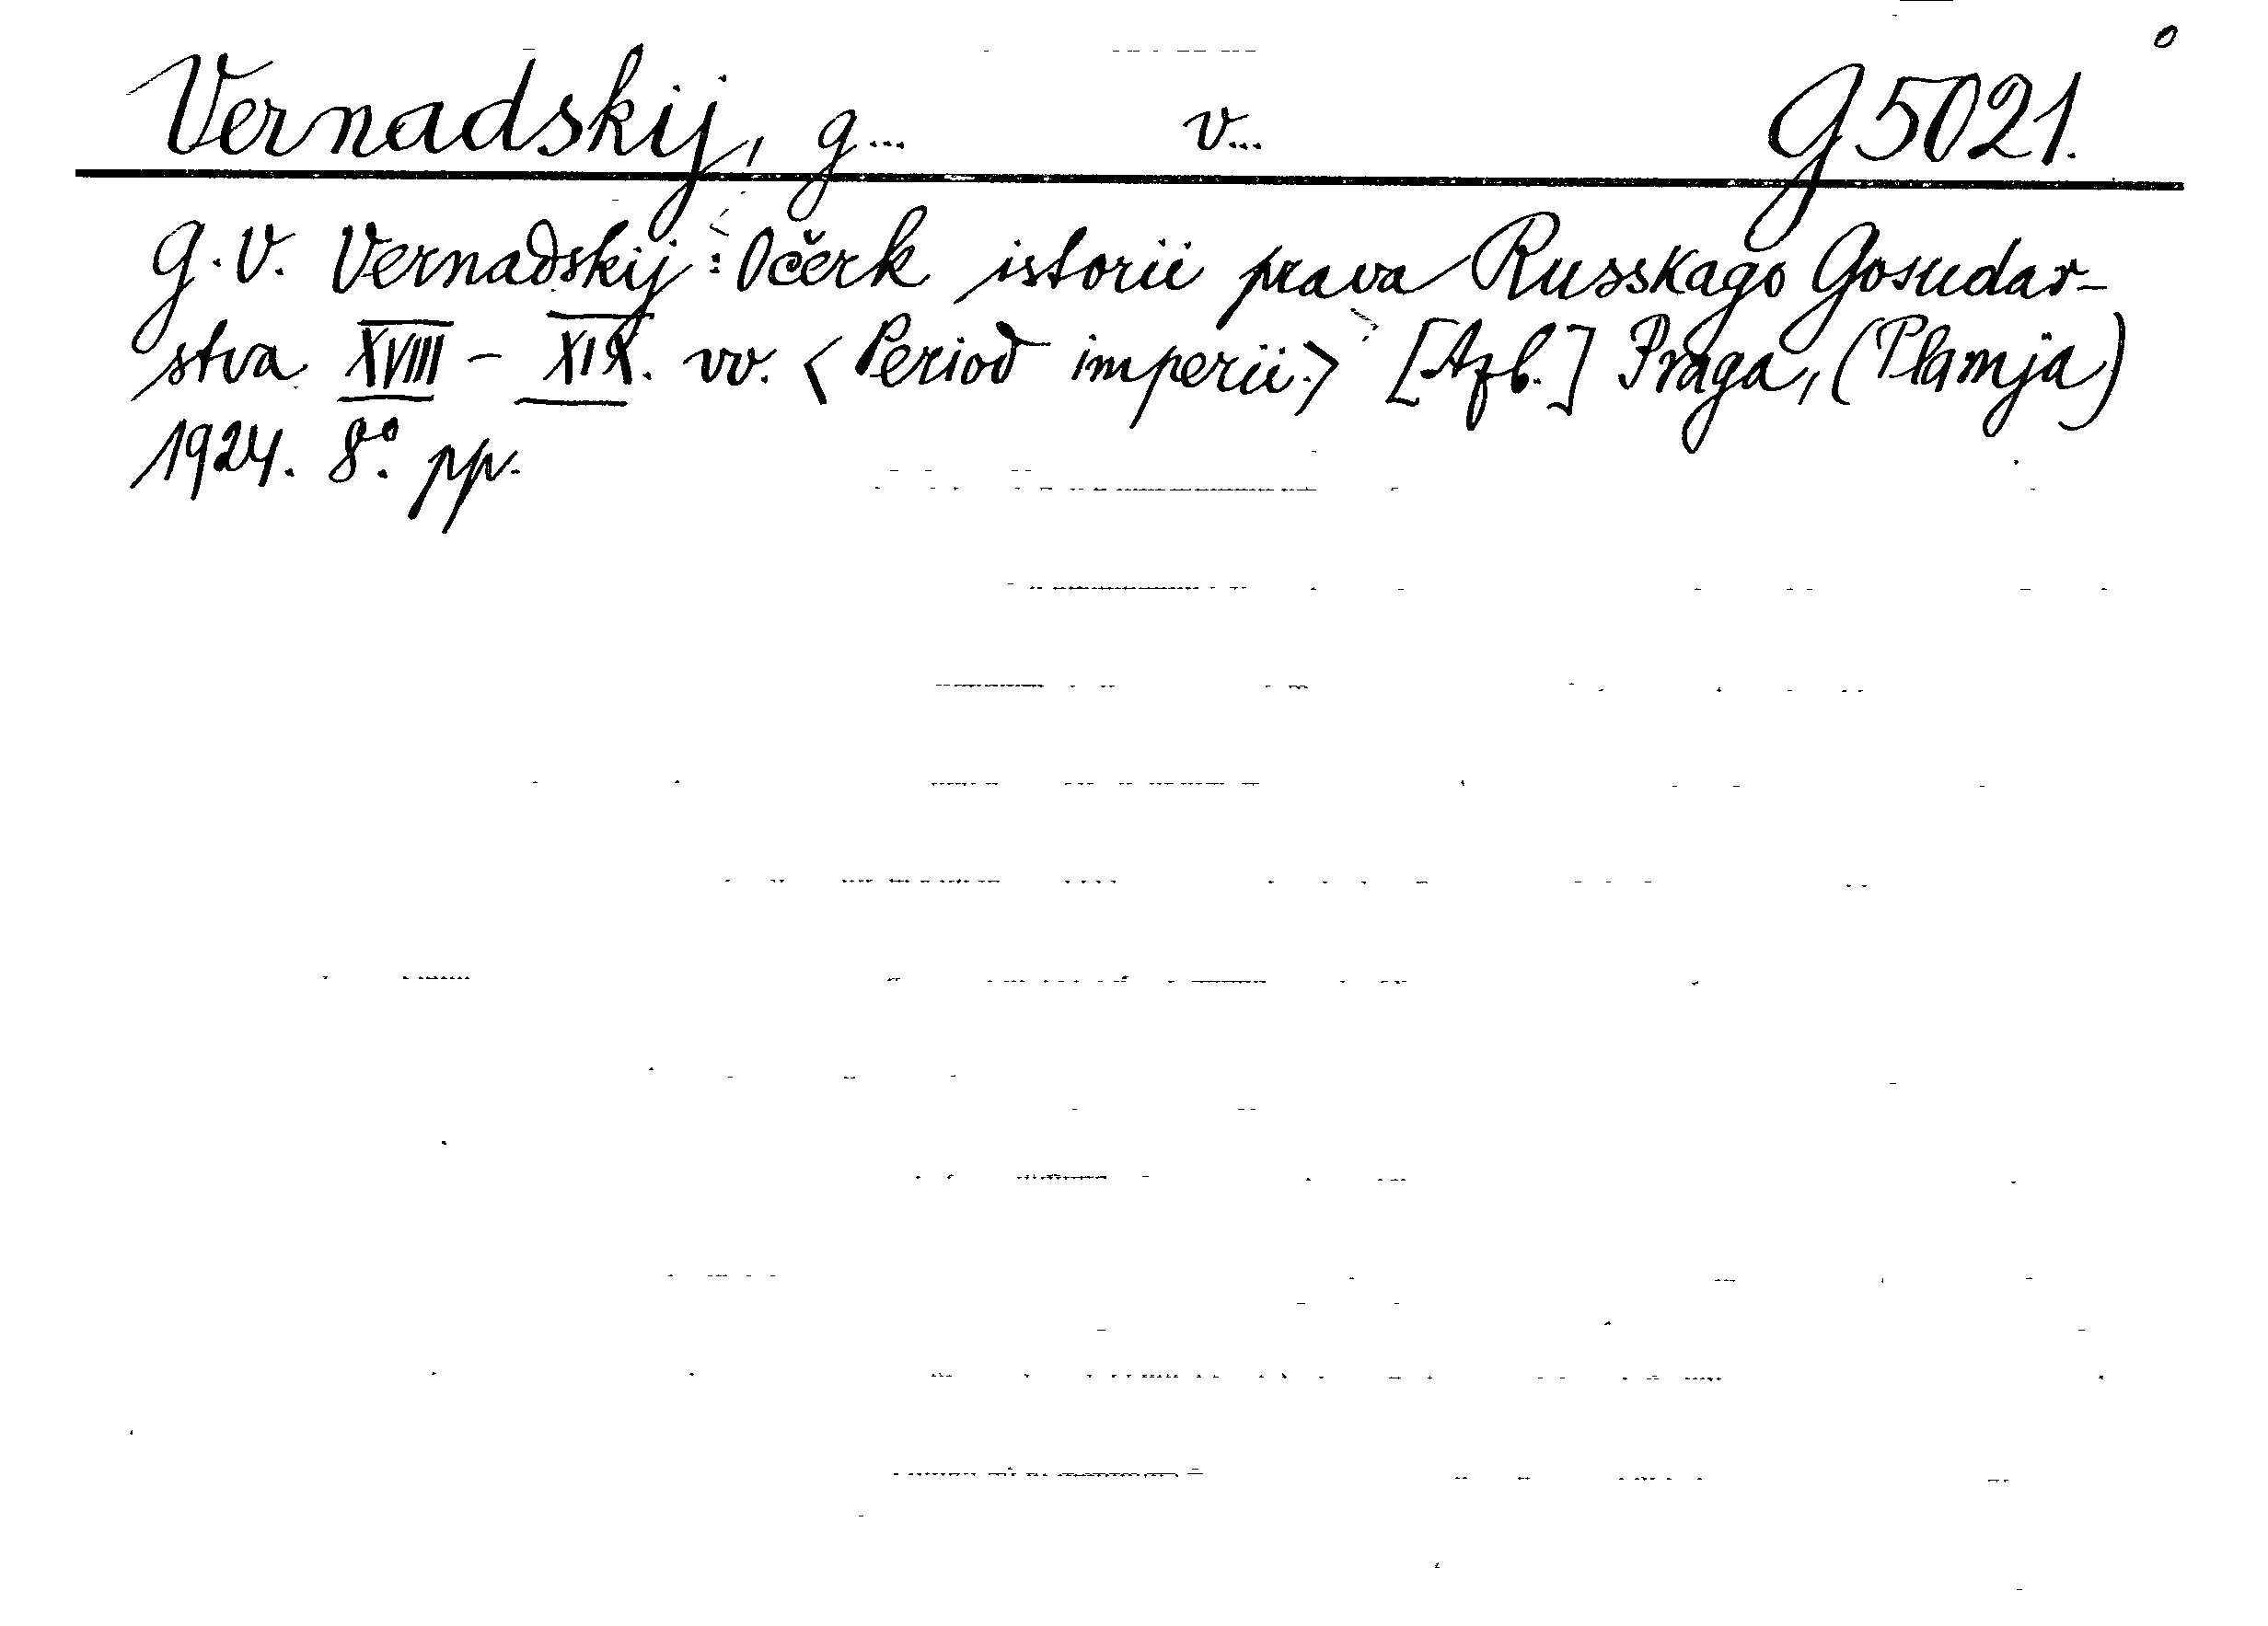 Vernadskij, G... V... G 5021.
G. V. Vernadskij: Očerk istorii prava Russkago Gosudar-
stva XVIII - XIX. vv. <Period imperii.> [Azb.] Praga, (Plamja)
1924. 8°. pp.